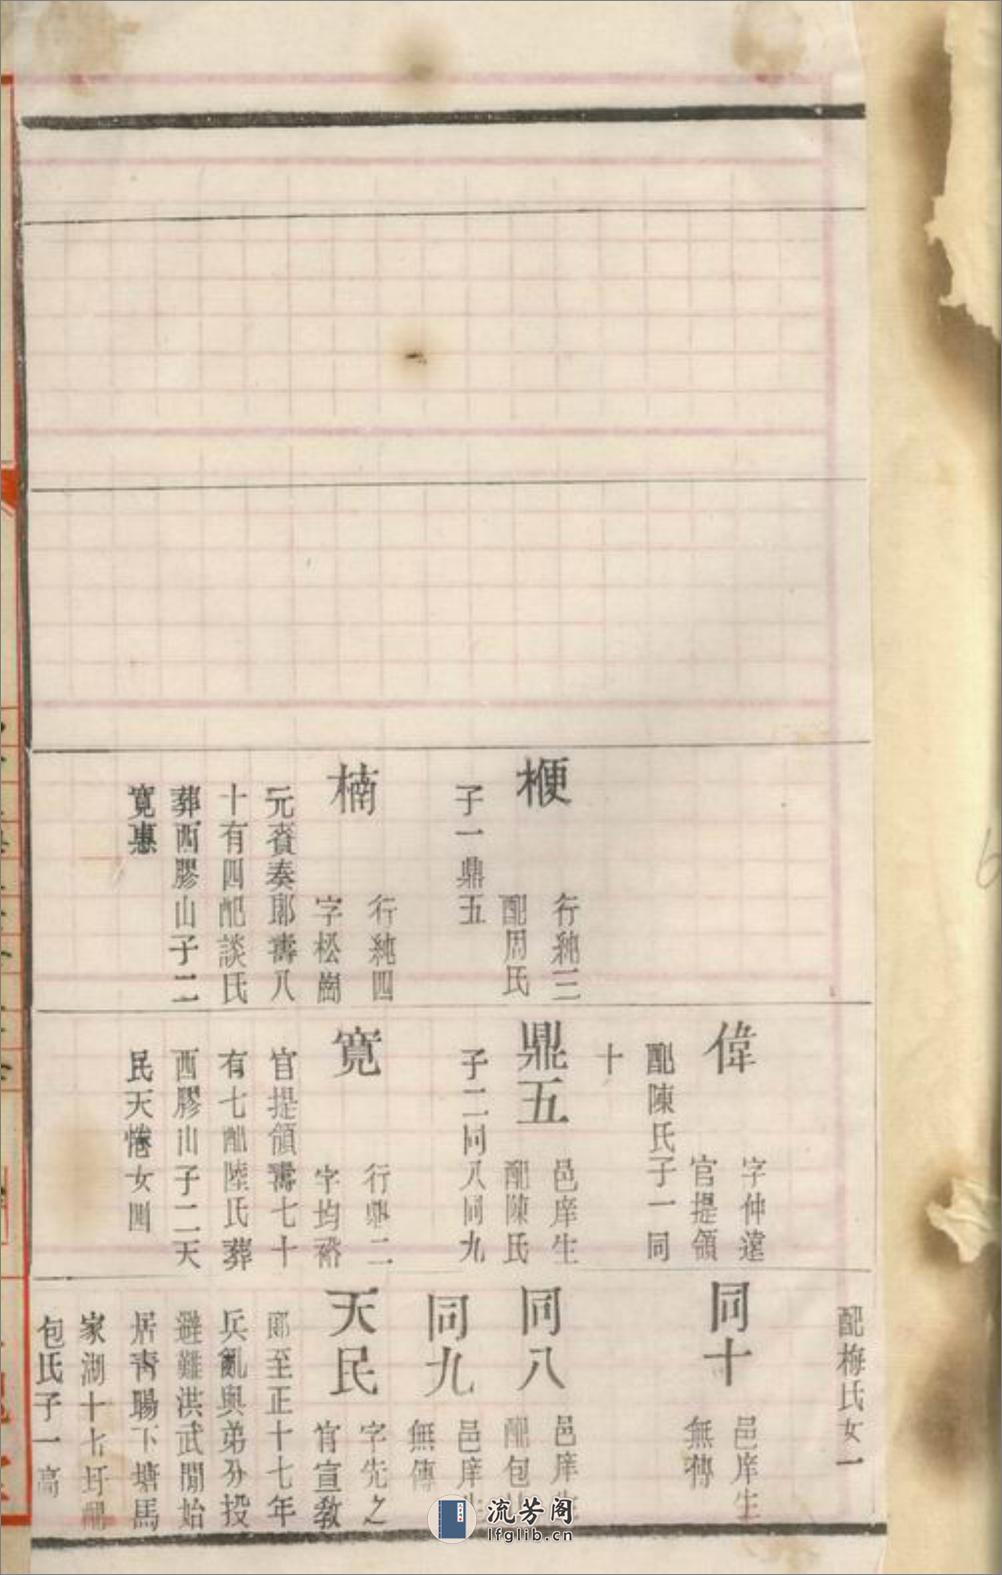 楩
行純三
配周氏
子一鼎五
楠
行純四
字松崗
元賓奏郞壽八
十有四配談氏
葬西膠山子二
寬惠
偉
字仲遠
官提領
配陳氏子一同
十
鼎五
邑庠生
配陳氏
子二同八同九
寬
行鼎二
字均裕
官提領壽七十
有七配陸氏葬
西膠山子二天
民天惓女四
配梅氏女一
同十
邑庠生
無傳
同八
邑庠生
配包
同九
邑庠生
無傳
天民
字先之
官宣教
郞至正十七年
兵亂與弟分投
避難洪武間始
居靑暘下塘馬
家湖十七圩配
包氏子一高
流芳阁
lfglib.cn